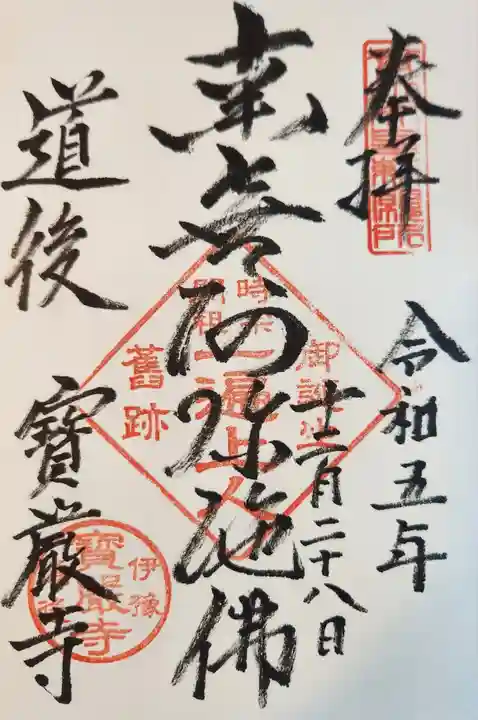 奉拝
令和五年
十二月二十八日
南無阿弥陀佛
時宗
開祖
一遍上人
御誕生
舊跡
道後
寶厳寺
伊豫
寶嚴寺